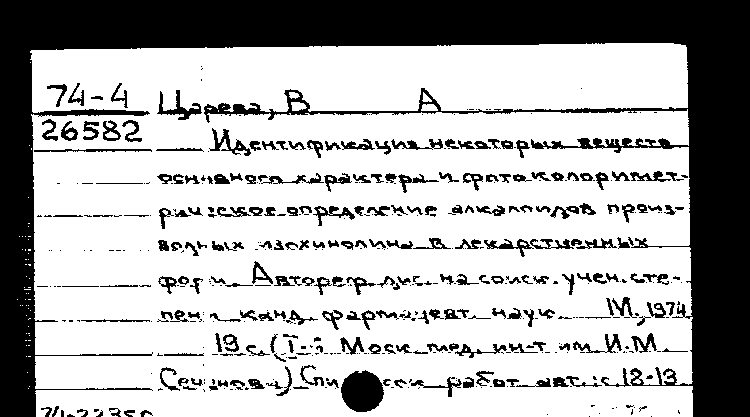 74-4 Царева, В А
26582
Идентификация некоторых веществ
основного характера и фотоколоримет-
рическое определение алкалоидов произ-
водных изохинолина в лекарственных
форм. Автореф. дис. на соиск. учен. сте-
пени канд. фармацевт. наук. М., 1974
19 с. (I-й Моск. мед. ин-т им И.М.
Сеченова) Список работ авт.: с. 18-19.